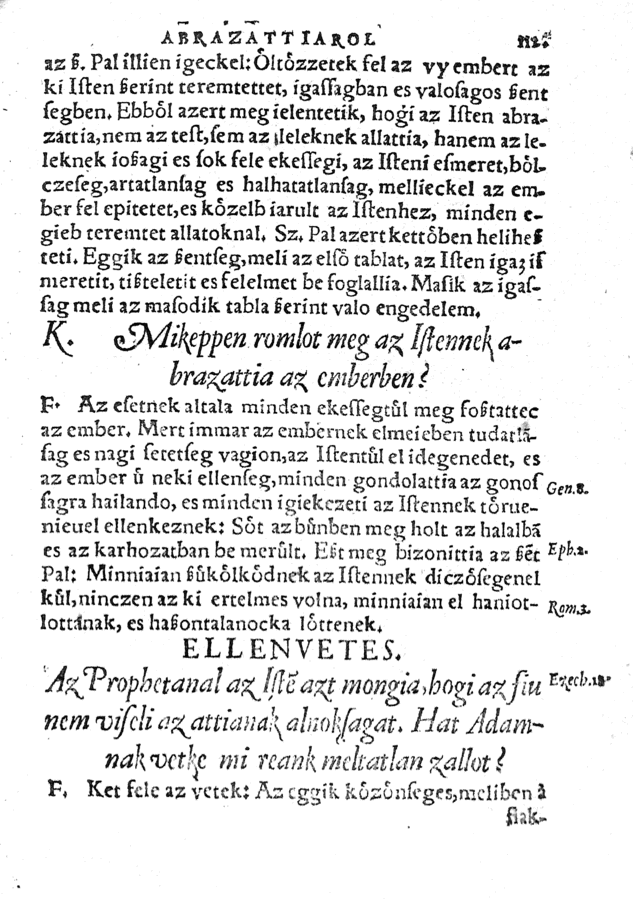 ABRAZATTIAROL 112.
az ß. Pal illien igeckel: Öltözzetek fel az vy embert az
ki Iſten ßerint teremtettet, igaſſagban es valoſagos ßent
ſegben. Ebből azert meg ielentetik, hogi az Iſten abra-
zattia, nem az teſt, ſem az leleknek allattia, hanem az le-
leknek ioßagi es ſok fele ekeſſegi, az Iſteni eſmeret, böl-
czeſeg, artatlanſag es halhatatlanſag, mellieckel az em-
ber fel epitetet, es közelb iarult az Iſtenhez, minden e-
gieb teremtet allatoknal. Sz. Pal azert kettőben heliheſ
teti. Eggik az ßentſeg, meli az elſő tablat, az Iſten igaz iſ
meretit, tißteletit es felelmet be foglallia. Maſik az igaſ-
ſag meli az maſodik tabla ßerint valo engedelem.
K. Mikeppen romlot meg az Iſtennek a-
brazattia az emberben?
F. Az eſetnek altala minden ekeſſegtůl meg foßtattec
az ember. Mert immar az embernek elmeieben tudatlā-
ſag es nagi ſetetſeg vagion, az Iſtentůl el idegenedet, es
az ember ů neki ellenſeg, minden gondolattia az gonoſ
ſagra hailando, es minden igiekezeti az Iſtennek törue-
nieuel ellenkeznek: Sőt az bůnben meg holt az halalbā
es az karhozatban be merůlt. Eßt meg bizonittia az ßēt
Pal: Minniaian ßůkölködnek az Iſtennek diczőſegenel
kůl, ninczen az ki ertelmes volna, minniaian el haniot-
lottanak, es haßontalanocka lőttenek.
Gen. 8.
Eph. 2.
Rom. 3.
ELLENVETES.
Az Prophetanal az Iſtē azt mongia, hogi az fiu
nem viſeli az attianak alnokſagat. Hat Adam-
nak vetke mi reank meltatlan zallot?
Ezech. 18.
F. Ket fele az vetek: Az eggik közönſeges, meliben a
fiak-